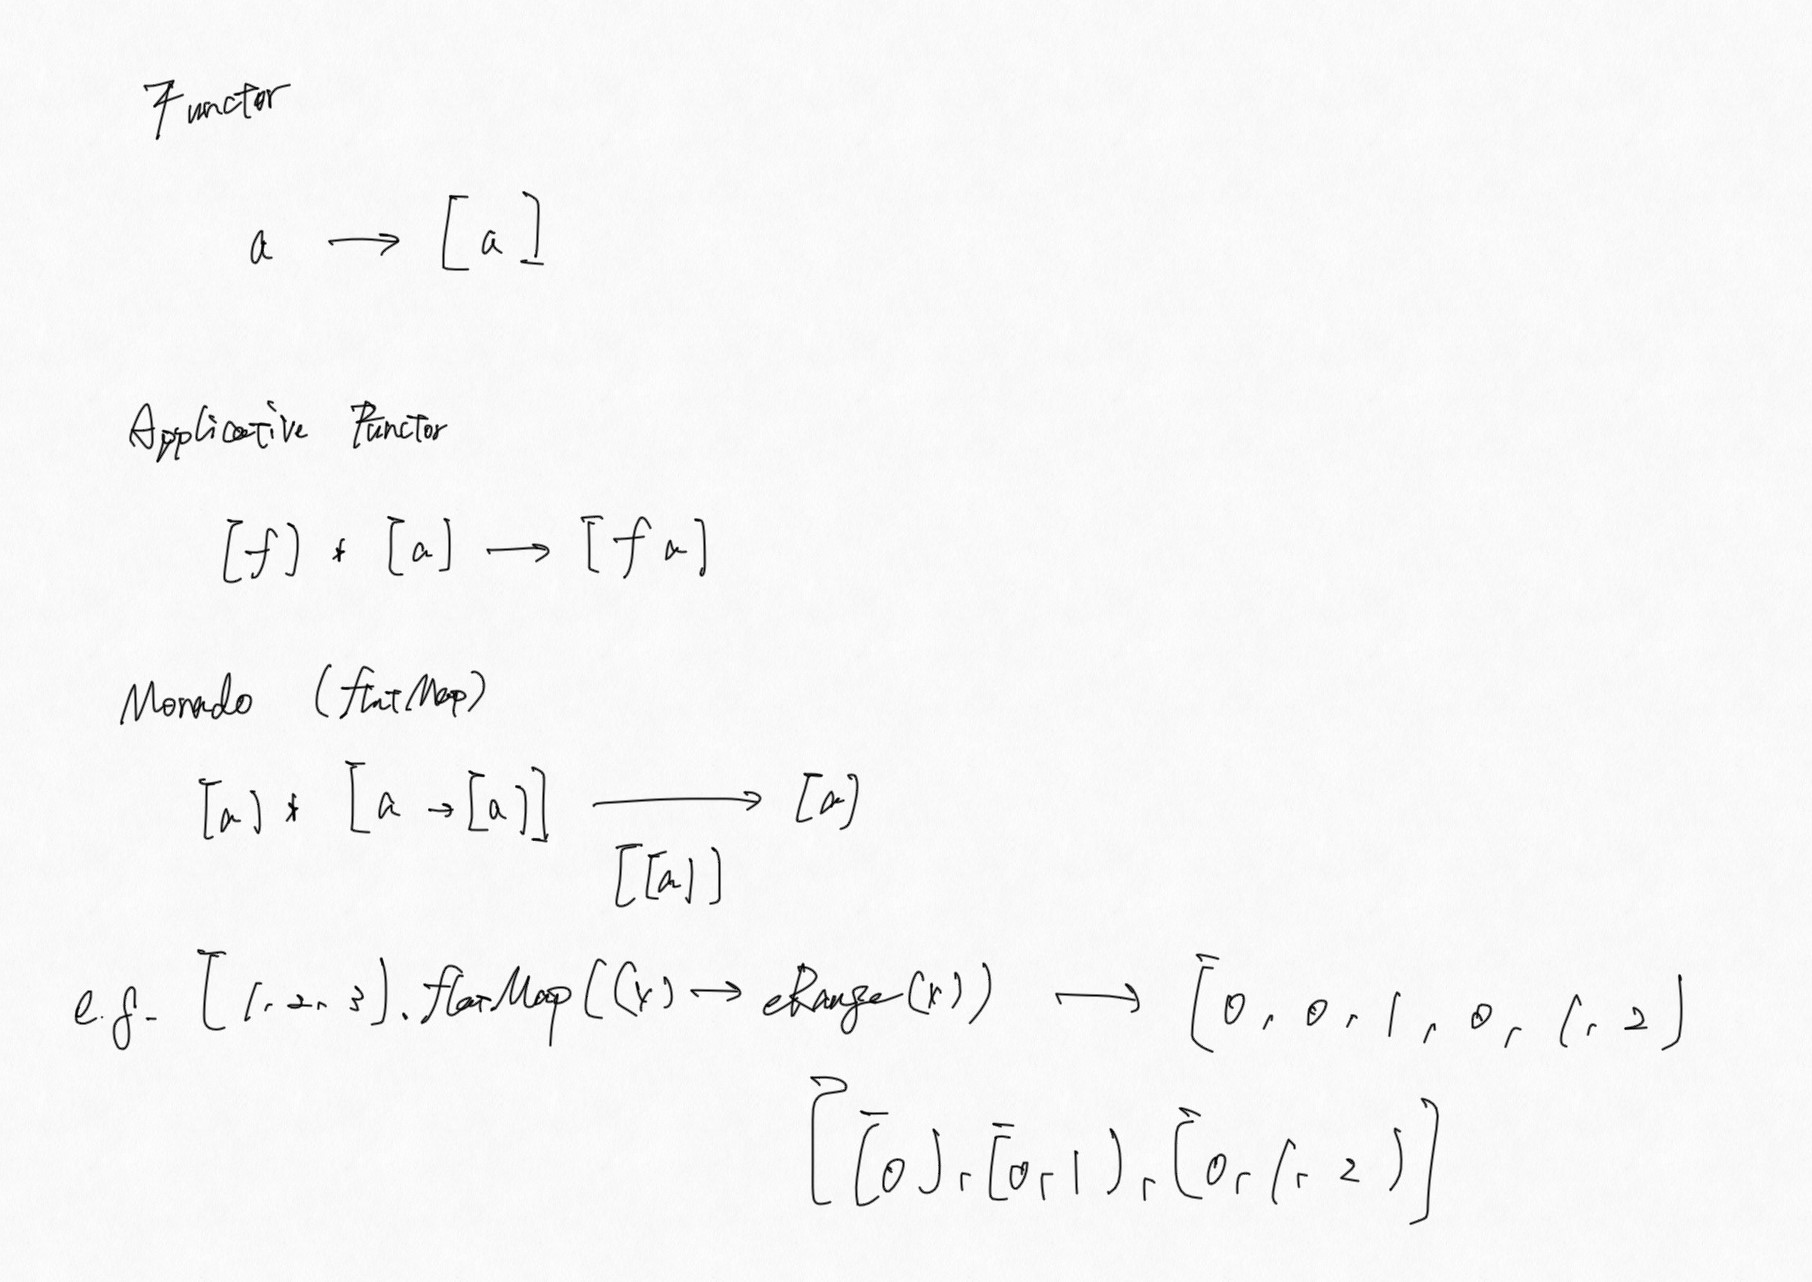 Functor
a → [a]
Applicative Functor
[f] * [a] → [f a]
Monado (flatMap)
[a] * [a → [a]] → [a]
[[a]]
e.g. [1, 2, 3].flatMap((x) → eRange(x)) → [0, 0, 1, 0, 1, 2]
[[0], [0, 1], [0, 1, 2]]